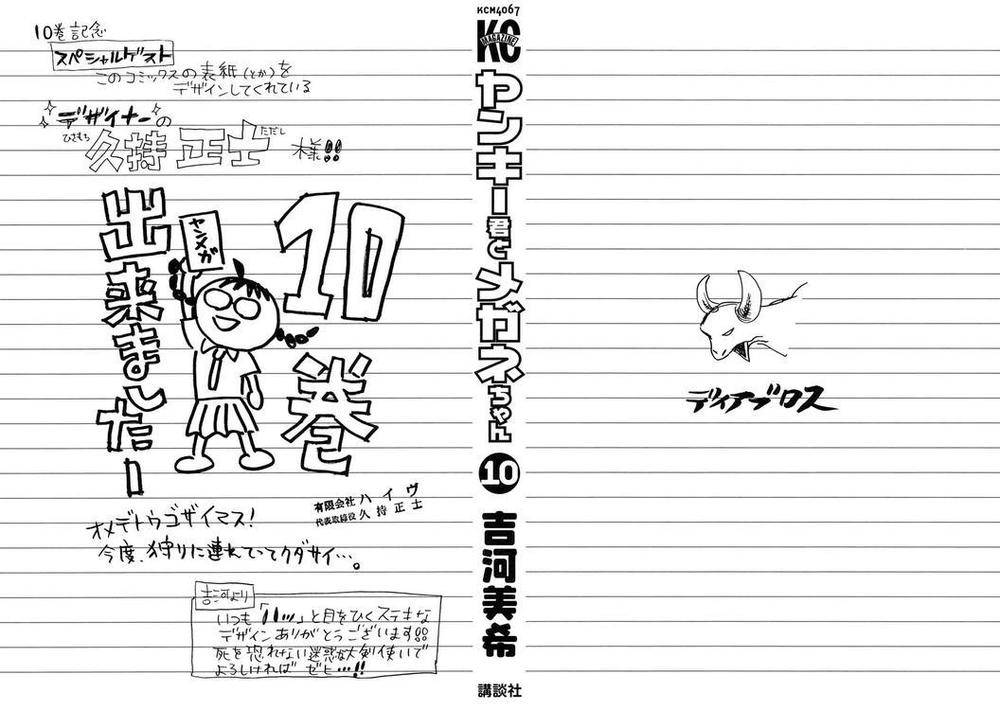 10巻記念
スペシャルゲスト
このコミックスの表紙(とか)を
デザインしてくれている
デザイナーの
ひさもち ただし
久持 正士 様!!
10巻
出来ましたー
ヤンメガ
有限会社ハイヴ
代表取締役 久持正士
オメデトウゴザイマス!
今度、狩りに連れていってクダサイ…。
吉河より
いつも「ハッ」と目をひくステキな
デザインありがとうございます!!
死を恐れない迷惑な大剣使いで
よろしければ ゼヒ…!!
KCM4067
KC
MAGAZINE
ヤンキー君とメガネちゃん
10
吉河美希
講談社
ディアブロス